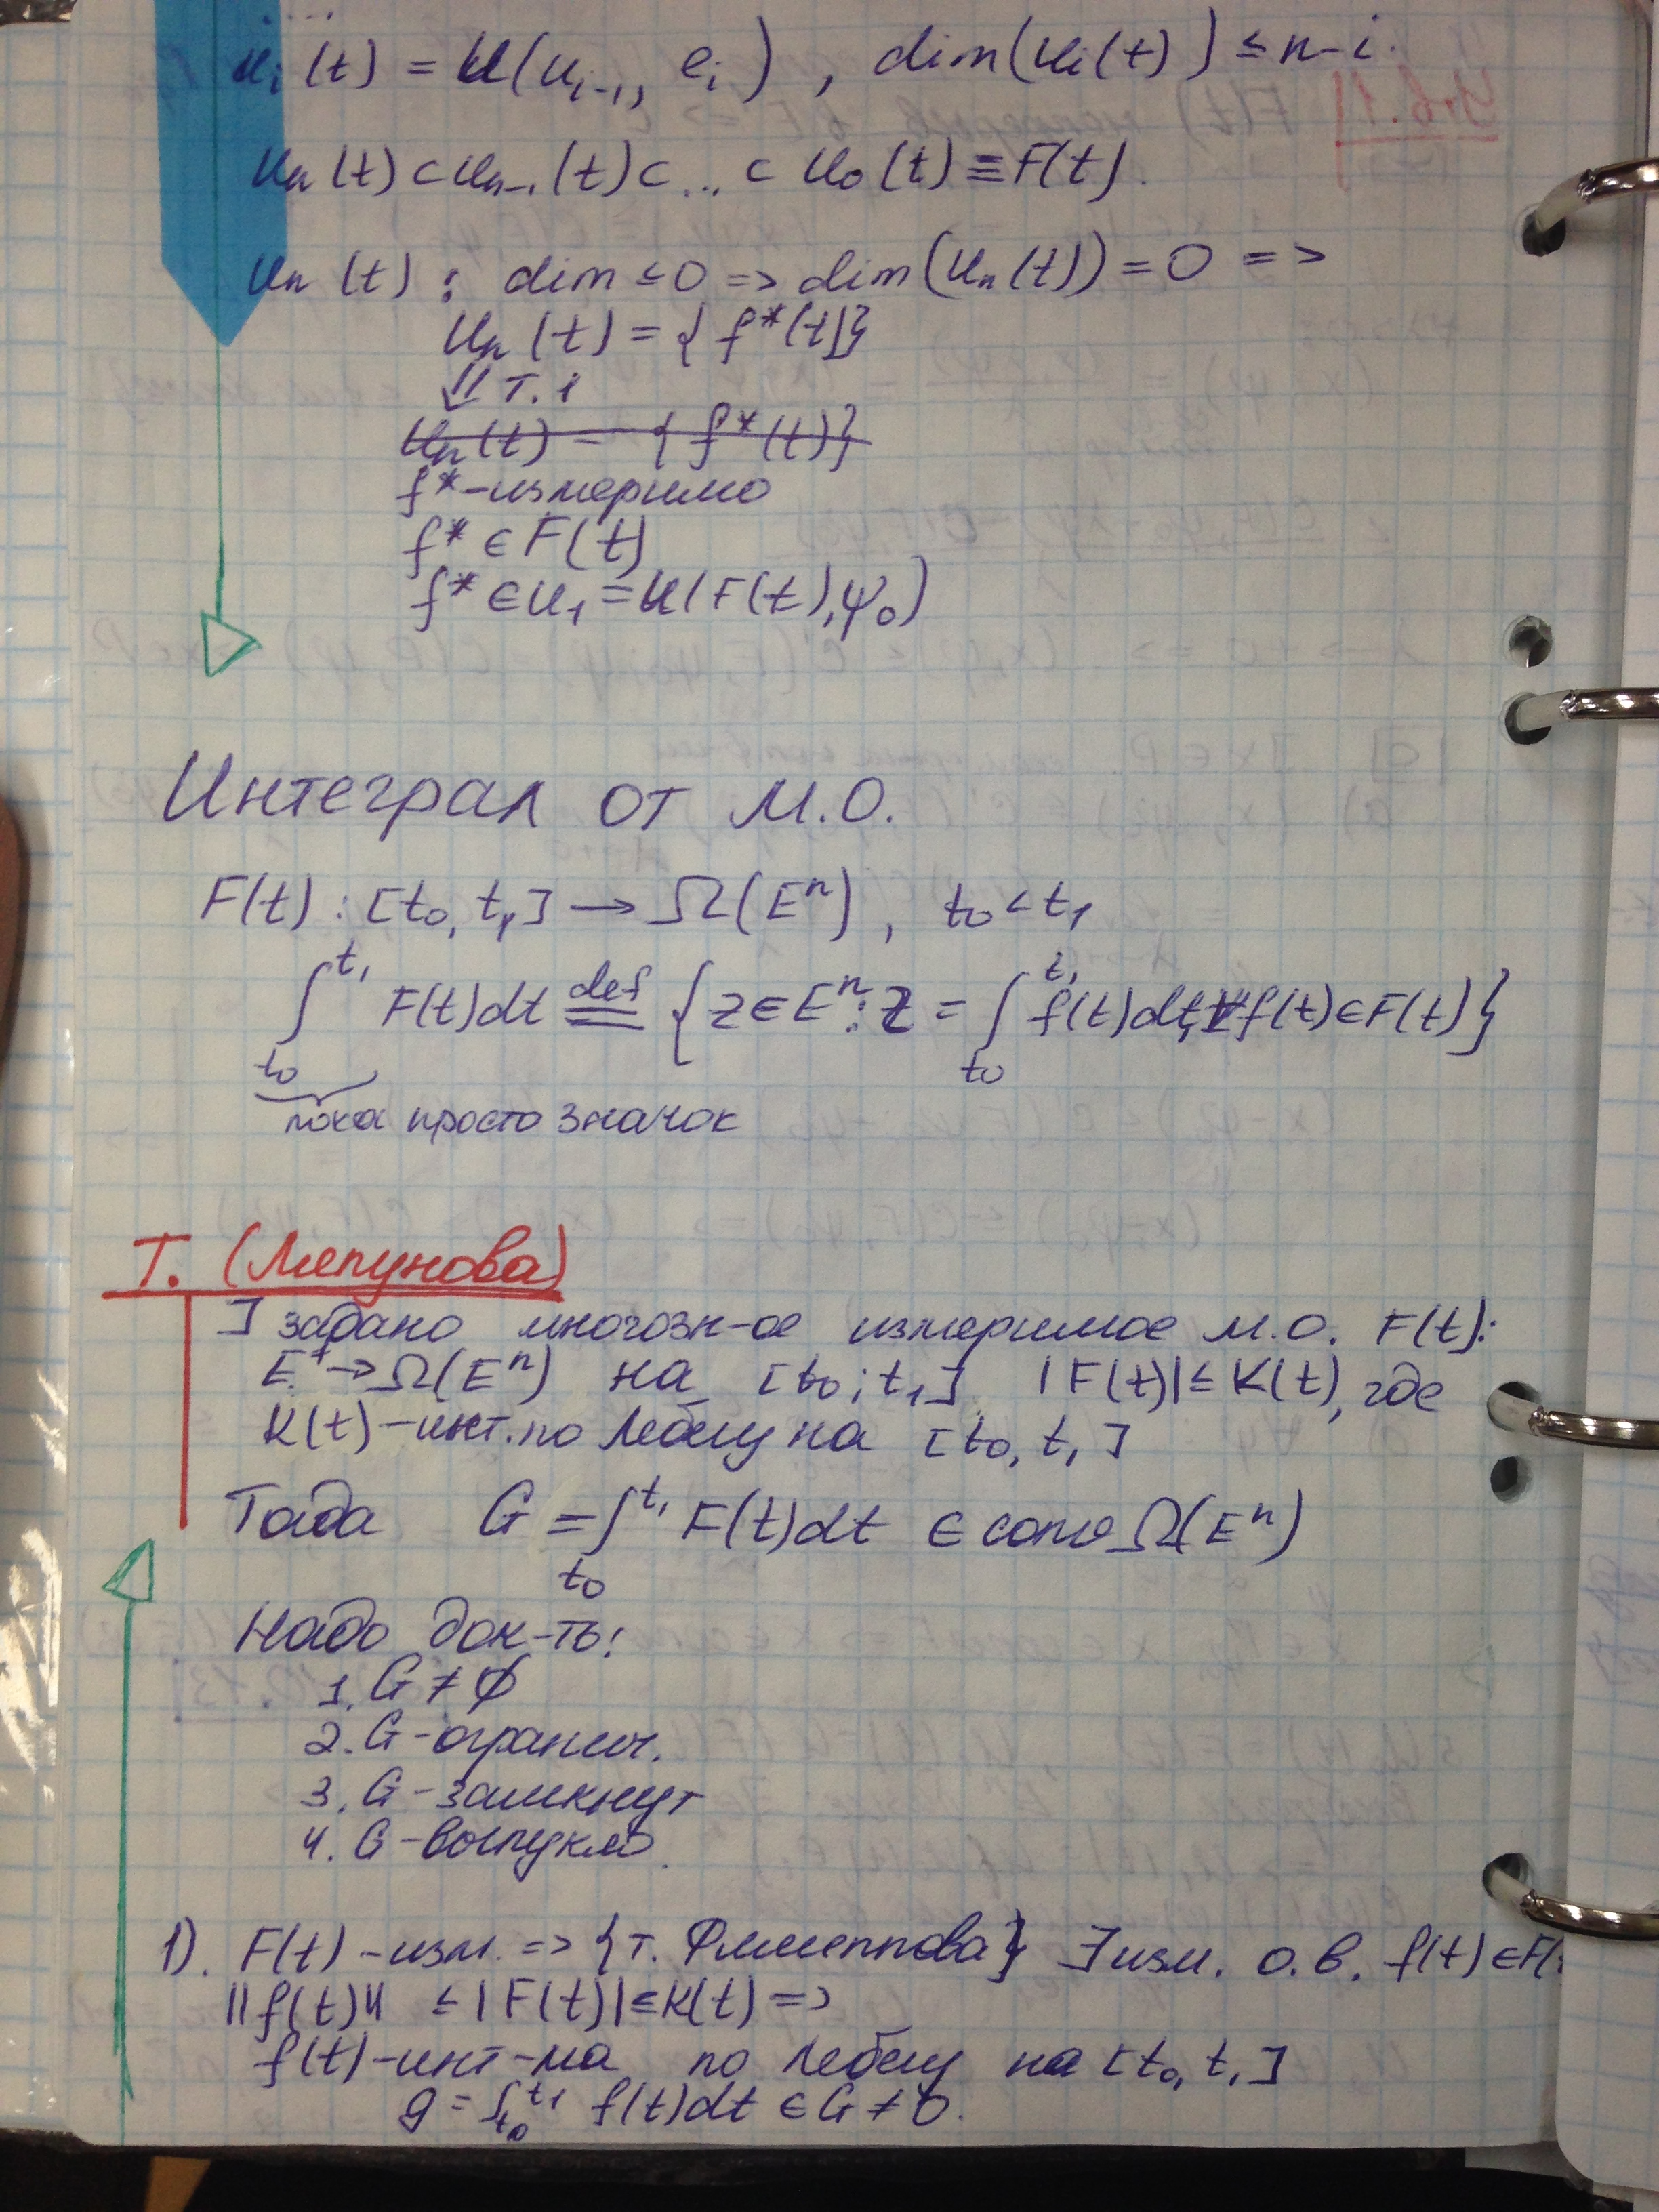 U_i(t) = U(U_{i-1}, e_i), dim(U_i(t)) ≤ n-i.
U_n(t) ⊂ U_{n-1}(t) ⊂ ... ⊂ U_0(t) ≡ F(t).
U_n(t): dim ≤ 0 => dim(U_n(t)) = 0 =>
U_n(t) = {f*(t)}
⇓ т. 1
U_n(t) = {f*(t)}
f* - измеримо
f* ∈ F(t)
f* ∈ U_1 = U(F(t), ψ_0)
Интеграл от М.О.
F(t): [t_0, t_1] → Ω(E^n), t_0 < t_1
∫_{t_0}^{t_1} F(t)dt def= {z ∈ E^n: z = ∫_{t_0}^{t_1} f(t)dt, ∀ f(t) ∈ F(t)}
пока просто значок
Т. (Ляпунова)
] задано многозн-ое измеримое М.О. F(t):
E^1 → Ω(E^n) на [t_0; t_1] |F(t)| ≤ K(t), где
K(t) - инт. по Лебегу на [t_0, t_1]
Тогда G = ∫_{t_0}^{t_1} F(t)dt ∈ conv Ω(E^n)
Надо док-ть:
1. G ≠ ∅
2. G - огранич.
3. G - замкнут
4. G - выпукло.
1). F(t) - изм. => {т. Филиппова} ∃ изм. о.в. f(t) ∈ F(
||f(t)|| ≤ |F(t)| ≤ K(t) =>
f(t) - инт-ма по Лебегу на [t_0, t_1]
g = ∫_{t_0}^{t_1} f(t)dt ∈ G ≠ ∅.